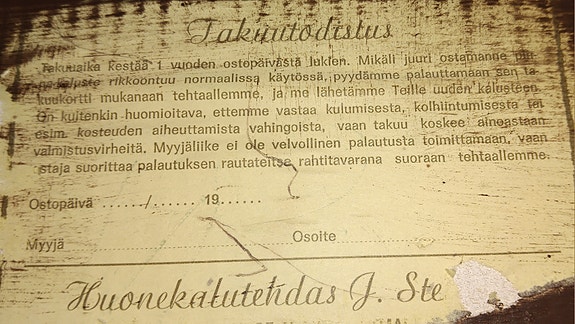 Takuutodistus
Takuuaika kestää 1 vuoden ostopäivästä lukien. Mikäli juuri ostamanne
rikkoontuu normaalissa käytössä, pyydämme palauttamaan sen ta-
kuukortti mukanaan tehtaallemme, ja me lähetämme Teille uuden kalusteen
On kuitenkin huomioitava, ettemme vastaa kulumisesta, kolhiintumisesta tai
esim. kosteuden aiheuttamista vahingoista, vaan takuu koskee ainoastaan
valmistusvirheitä. Myyjäliike ei ole velvollinen palautusta toimittamaan, vaan
staja suorittaa palautuksen rautateitse rahtitavarana suoraan tehtaallemme.
Ostopäivä ....../...... 19......
Myyjä ........................ Osoite ........................
Huonekalutehdas J. Ste